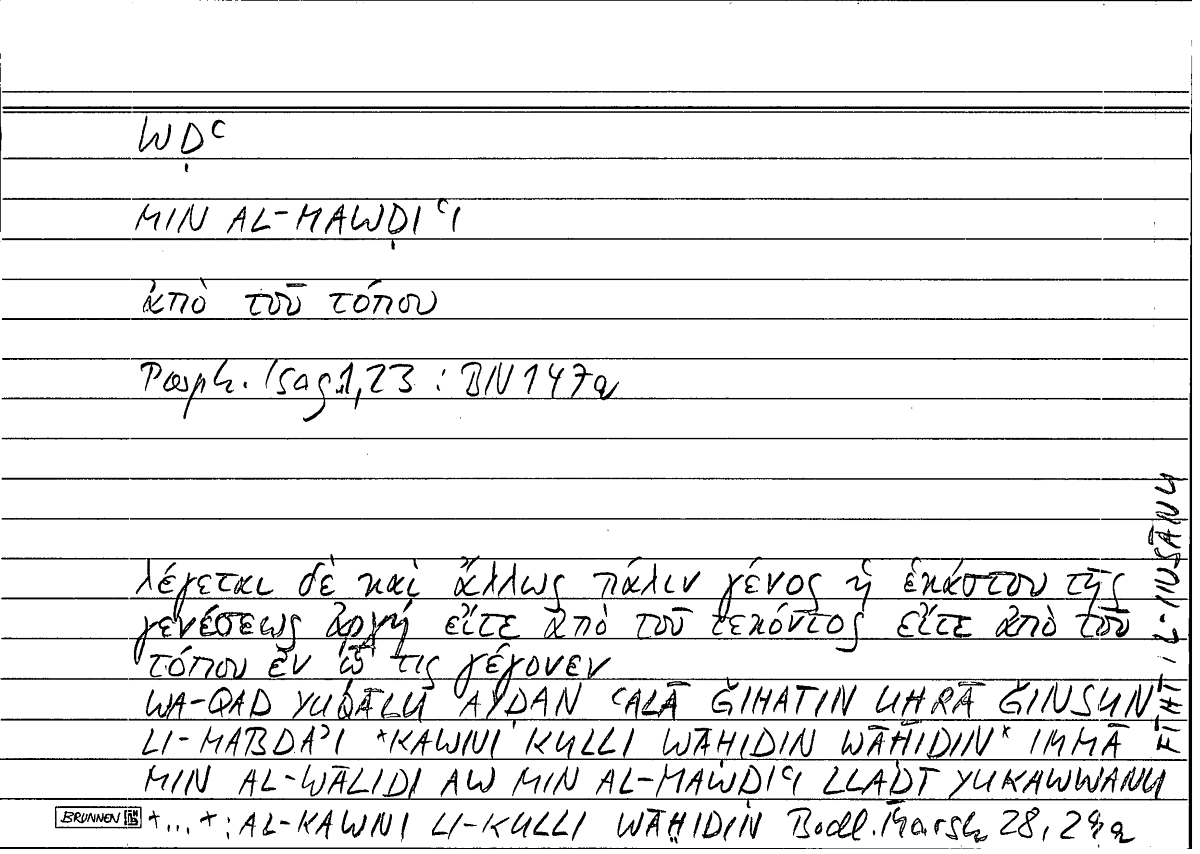 WḌʿ
MIN AL-MAWḌIʿI
ἀπὸ τοῦ τόπου
Porph. Isag. 1,23 : BN 147a
λέγεται δὲ καὶ ἄλλως πάλιν γένος ἡ ἑκάστου τῆς
γενέσεως ἀρχὴ εἴτε ἀπὸ τοῦ τεκόντος εἴτε ἀπὸ τοῦ
τόπου ἐν ᾧ τις γέγονεν
WA-QAD YUQĀLU AYḌAN ʿALĀ ǦIHATIN UḪRĀ ǦINSUN
LI-MABDAʾI *KAWNI KULLI WĀḤIDIN WĀḤIDIN* IMMĀ
MIN AL-WĀLIDI AW MIN AL-MAWḌIʿI LLAḎĪ YUKAWWANU
FĪHI L-INSĀNU
BRUNNEN *...*: AL-KAWNI LI-KULLI WĀḤIDIN Bodl. Marsh 28,